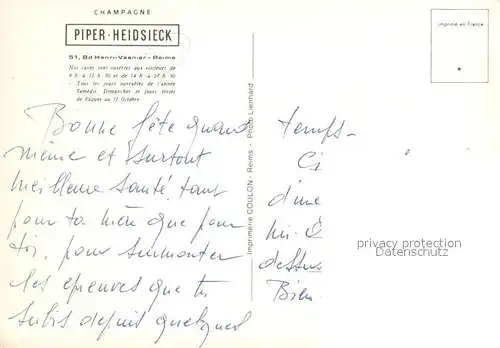 CHAMPAGNE
PIPER-HEIDSIECK
51, Bd Henri-Vasnier - Reims
Nos caves sont ouvertes aux visiteurs de
9 h à 11 h 30 et de 14 h à 17 h 30
- Tous les jours ouvrables de l'année
Samedis, Dimanches et jours fériés
de Pâques au 11 Octobre
Imprimé en France
Imprimerie COULON - Reims - Photo Lienhard
Bonne fête quand
même et surtout
meilleure santé, tant
pour ta mère que pour
toi, pour surmonter
les épreuves que tu
subis depuis quelques
temps-
Ci
d'une
mi-
dessus
Bien
privacy protection
Datenschutz